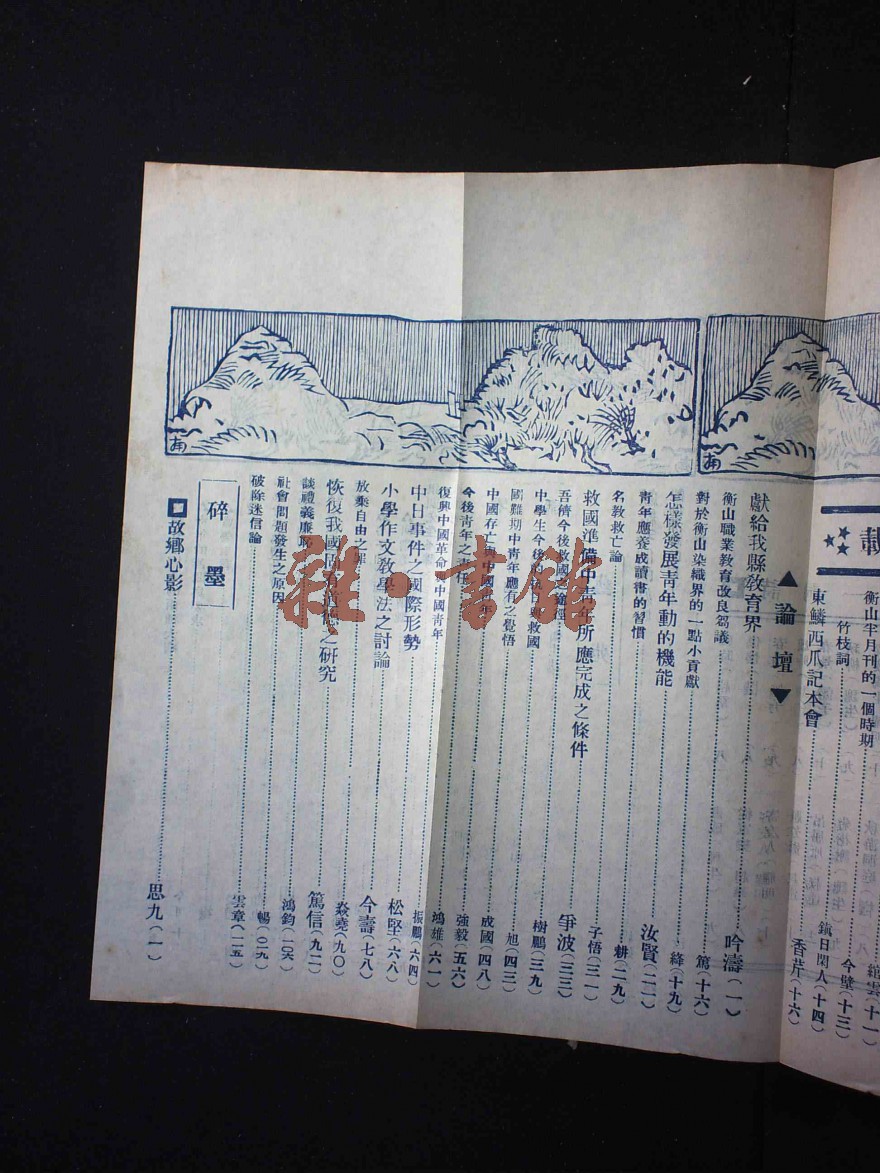 載
衡山半月刊的一個時期 綰雲（十一）
竹枝詞 今壁（十三）
東鱗西爪記本會 鎮日閑人（十四）
香芹（十六）
▲論壇▼
獻給我縣教育界 吟濤（一）
衡山職業教育改良芻議 篤（十六）
對於衡山染織界的一點小貢獻 絳（十九）
怎樣發展青年動的機能 汝賢（二二）
青年應養成讀書的習慣 耕（二九）
名教救亡論 子悟（三一）
救國準備中青年所應完成之條件 爭波（三三）
吾儕今後救國 樹鵬（三九）
中學生今後的 救國 旭（四三）
國難期中青年應有之覺悟 成國（四八）
中國存亡 中國 年 強毅（五六）
今後青年之 任 鴻雄（六一）
復興中國革命 中國青年 振鵬（六四）
中日事件之國際形勢 松堅（六八）
小學作文教學法之討論 今壽（七八）
放棄自由之罪 焱堯（九〇）
恢復我國固有道德之研究 篤信（九二）
談禮義廉恥 鴻鈞（一〇六）
社會問題發生之原因 暢（〇一九）
破除迷信論 雲章（一一五）
碎墨
故鄉心影 思九（一）
南
南
雜·書館